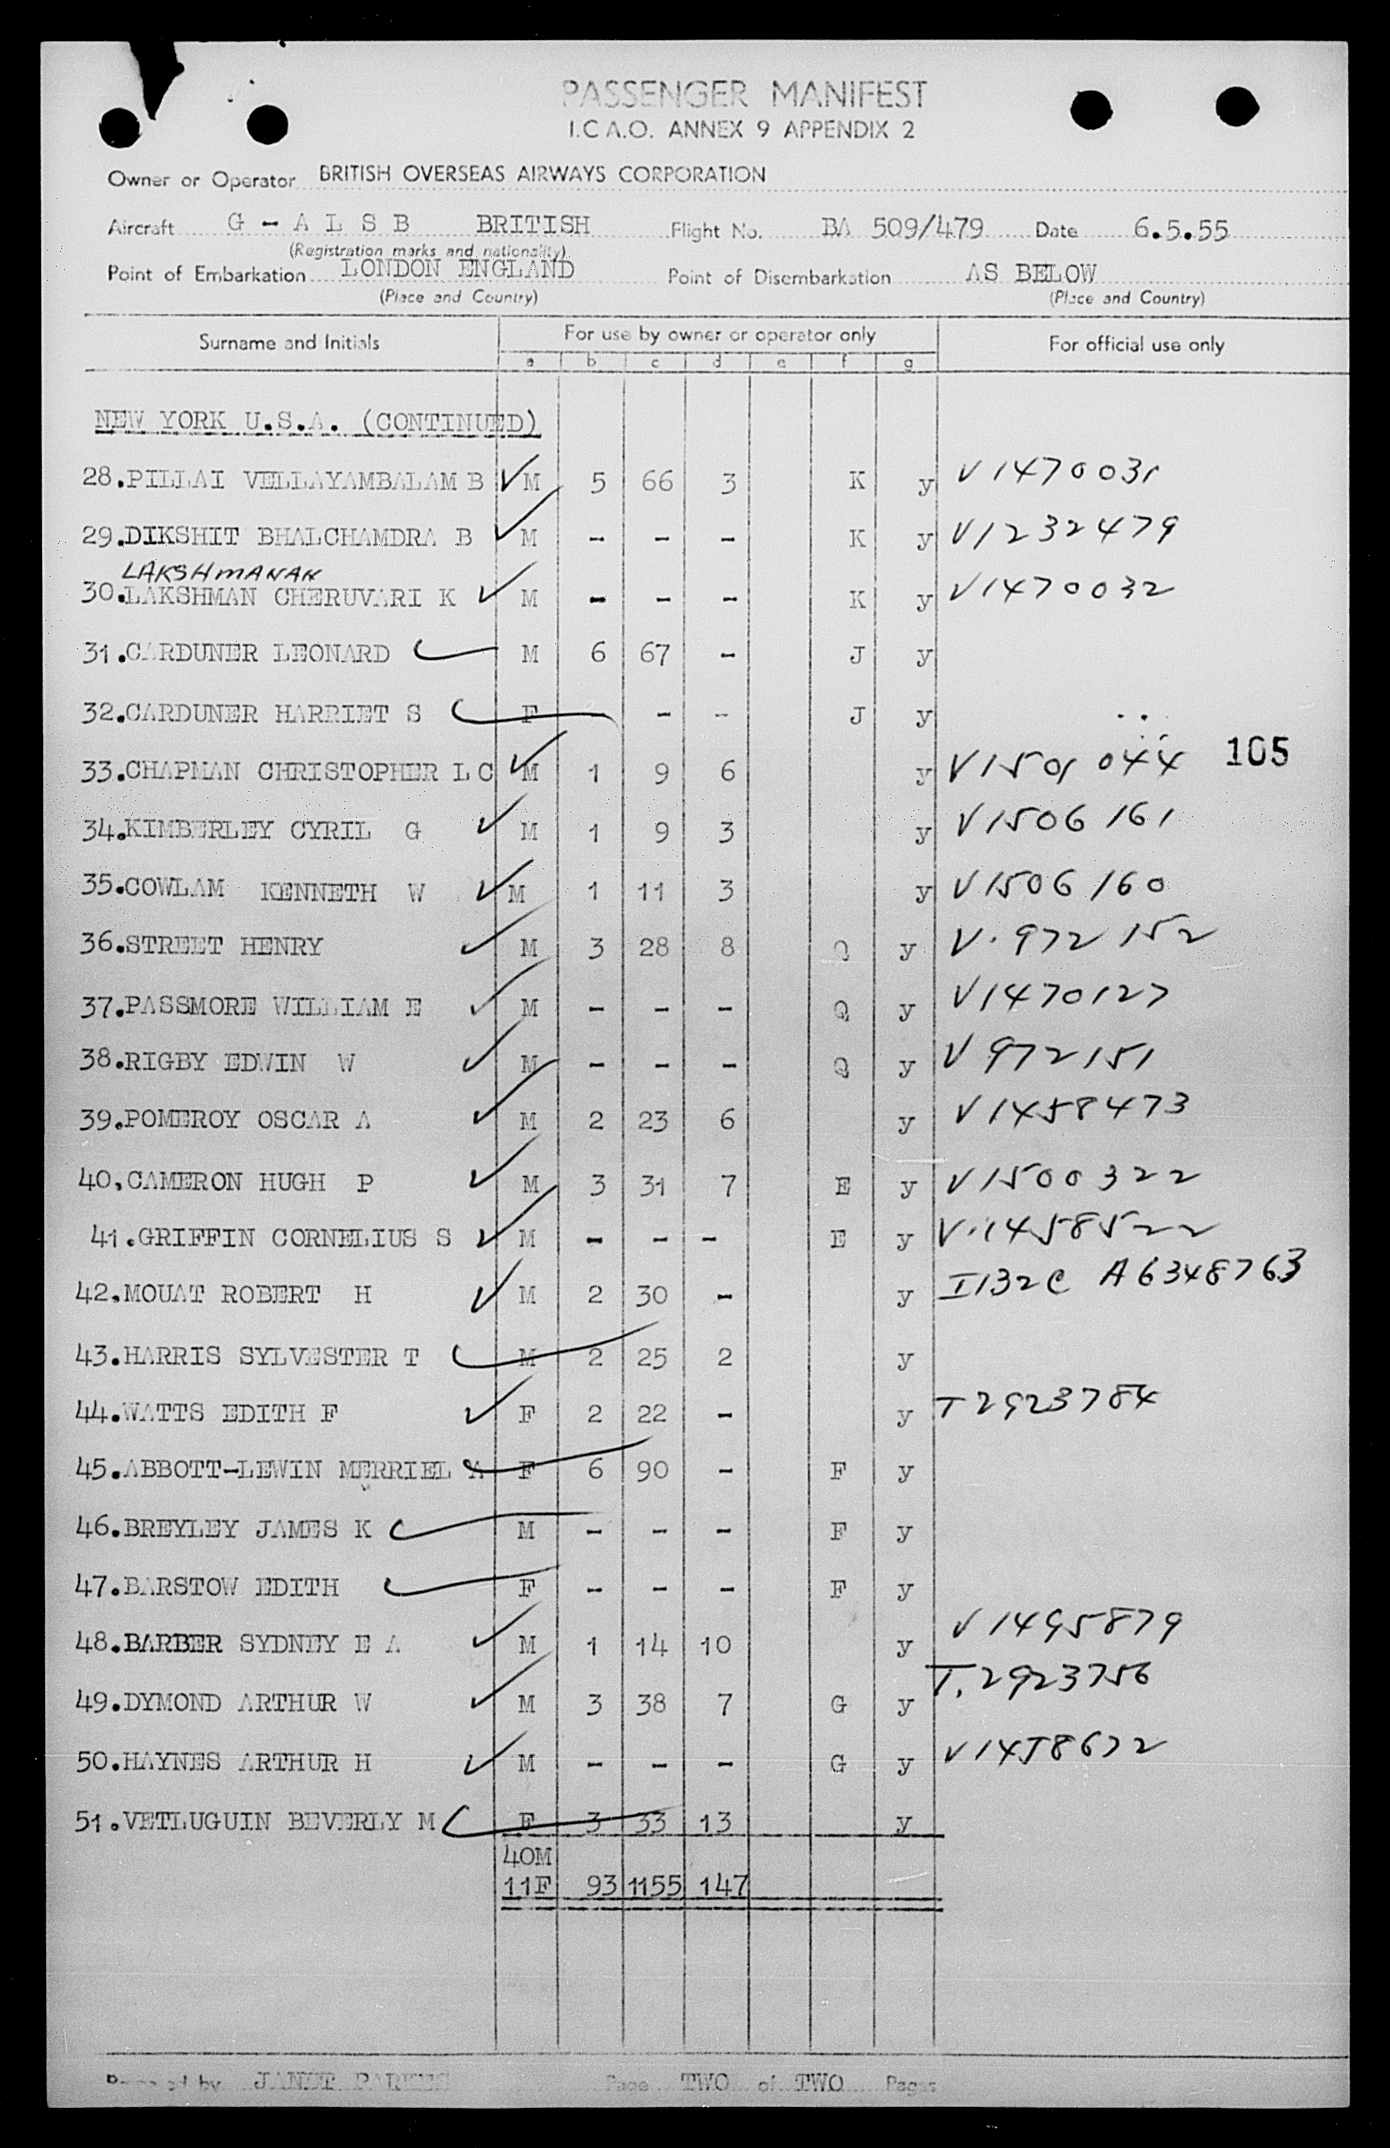 PASSENGER MANIFEST
I.C.A.O. ANNEX 9 APPENDIX 2
Owner or Operator BRITISH OVERSEAS AIRWAYS CORPORATION
Aircraft G - A L S B BRITISH Flight No. BA 509/479 Date 6.5.55
(Registration marks and nationality)
Point of Embarkation LONDON ENGLAND Point of Disembarkation AS BELOW
(Place and Country) (Place and Country)
Surname and Initials For use by owner or operator only For official use only
a b c d e f g
NEW YORK U.S.A. (CONTINUED)
28.PILLAI VELLAYAMBALAM B M 5 66 3 K y V1470031
29.DIKSHIT BHALCHAMDRA B M - - - K y V1232479
LAKSHMANAN
30.LAKSHMAN CHERUVARI K M - - - K y V1470032
31.CARDUNER LEONARD M 6 67 - J y
32.CARDUNER HARRIET S F - - J y
33.CHAPMAN CHRISTOPHER L C M 1 9 6 y V1501044 105
34.KIMBERLEY CYRIL G M 1 9 3 y V1506161
35.COWLAM KENNETH W M 1 11 3 y V1506160
36.STREET HENRY M 3 28 8 Q y V.972152
37.PASSMORE WILLIAM E M - - - Q y V1470127
38.RIGBY EDWIN W M - - - Q y V972151
39.POMEROY OSCAR A M 2 23 6 y V1458473
40.CAMERON HUGH P M 3 31 7 E y V1500322
41.GRIFFIN CORNELIUS S M - - - E y V.1458522
42.MOUAT ROBERT H M 2 30 - y I132C A6348763
43.HARRIS SYLVESTER T M 2 25 2 y
44.WATTS EDITH F F 2 22 - y T2923784
45.ABBOTT-LEWIN MERRIEL A F 6 90 - F y
46.BREYLEY JAMES K M - - - F y
47.BARSTOW EDITH F - - - F y
48.BARBER SYDNEY E A M 1 14 10 y V1495879
49.DYMOND ARTHUR W M 3 38 7 G y T.2923756
50.HAYNES ARTHUR H M - - - G y V1458672
51.VETLUGUIN BEVERLY M F 3 33 13 y
40M
11F 93 1155 147
Prepared by JANET Page TWO of TWO Pages